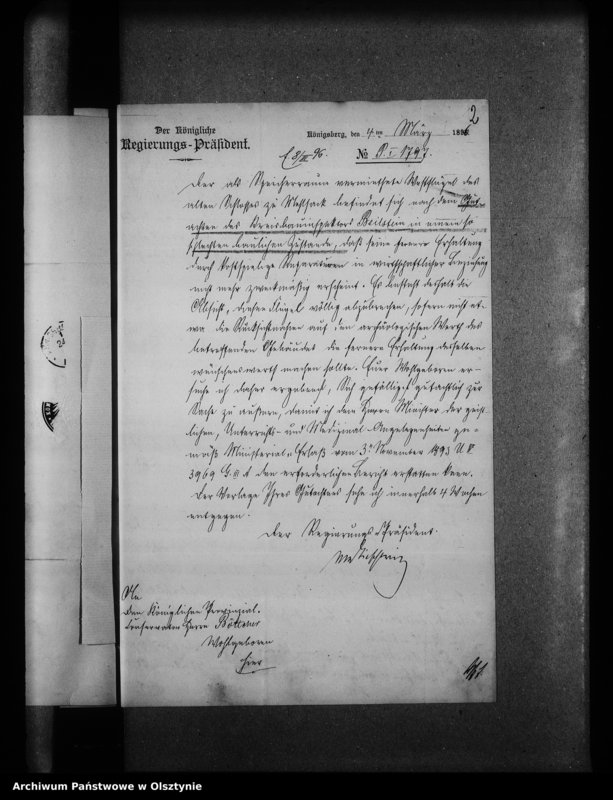 2
Der Königliche
Regierungs-Präsident.
Königsberg, den 4ten März 1896
№ P. I. 1797.
Der als Speicherraum vermiethete Westflügel des
alten Schlosses zu Mehlsack befindet sich nach dem Gut-
achten des Kreisbauinspektors Beilstein in einem so
schlechten baulichen Zustande, daß seine fernere Erhaltung
durch kostspielige Reparaturen in wirthschaftlicher Beziehung
nicht mehr zweckmäßig erscheint. Es besteht deshalb die
Absicht, diesen Flügel völlig abzubrechen, sofern nicht et-
wa die Rücksichtnahme auf den archäologischen Werth des
betreffenden Gebäudes die fernere Erhaltung desselben
wünschenswerth machen sollte. Euer Wohlgeboren er-
suche ich daher ergebenst, Sich gefälligst gutachtlich zur
Sache zu äußern, damit ich dem Herrn Minister der geist-
lichen, Unterrichts- und Medizinal-Angelegenheiten ge-
mäß Ministerial-Erlaß vom 3. November 1893 U
3969 den erforderlichen Bericht erstatten kann.
Der Vorlage Ihres Gutachtens sehe ich innerhalb 4 Wochen
entgegen.
Der Regierungs-Präsident.
An
den Königlichen Provinzial-
Conservator Herrn Bötticher
Wohlgeboren
hier
Archiwum Państwowe w Olsztynie